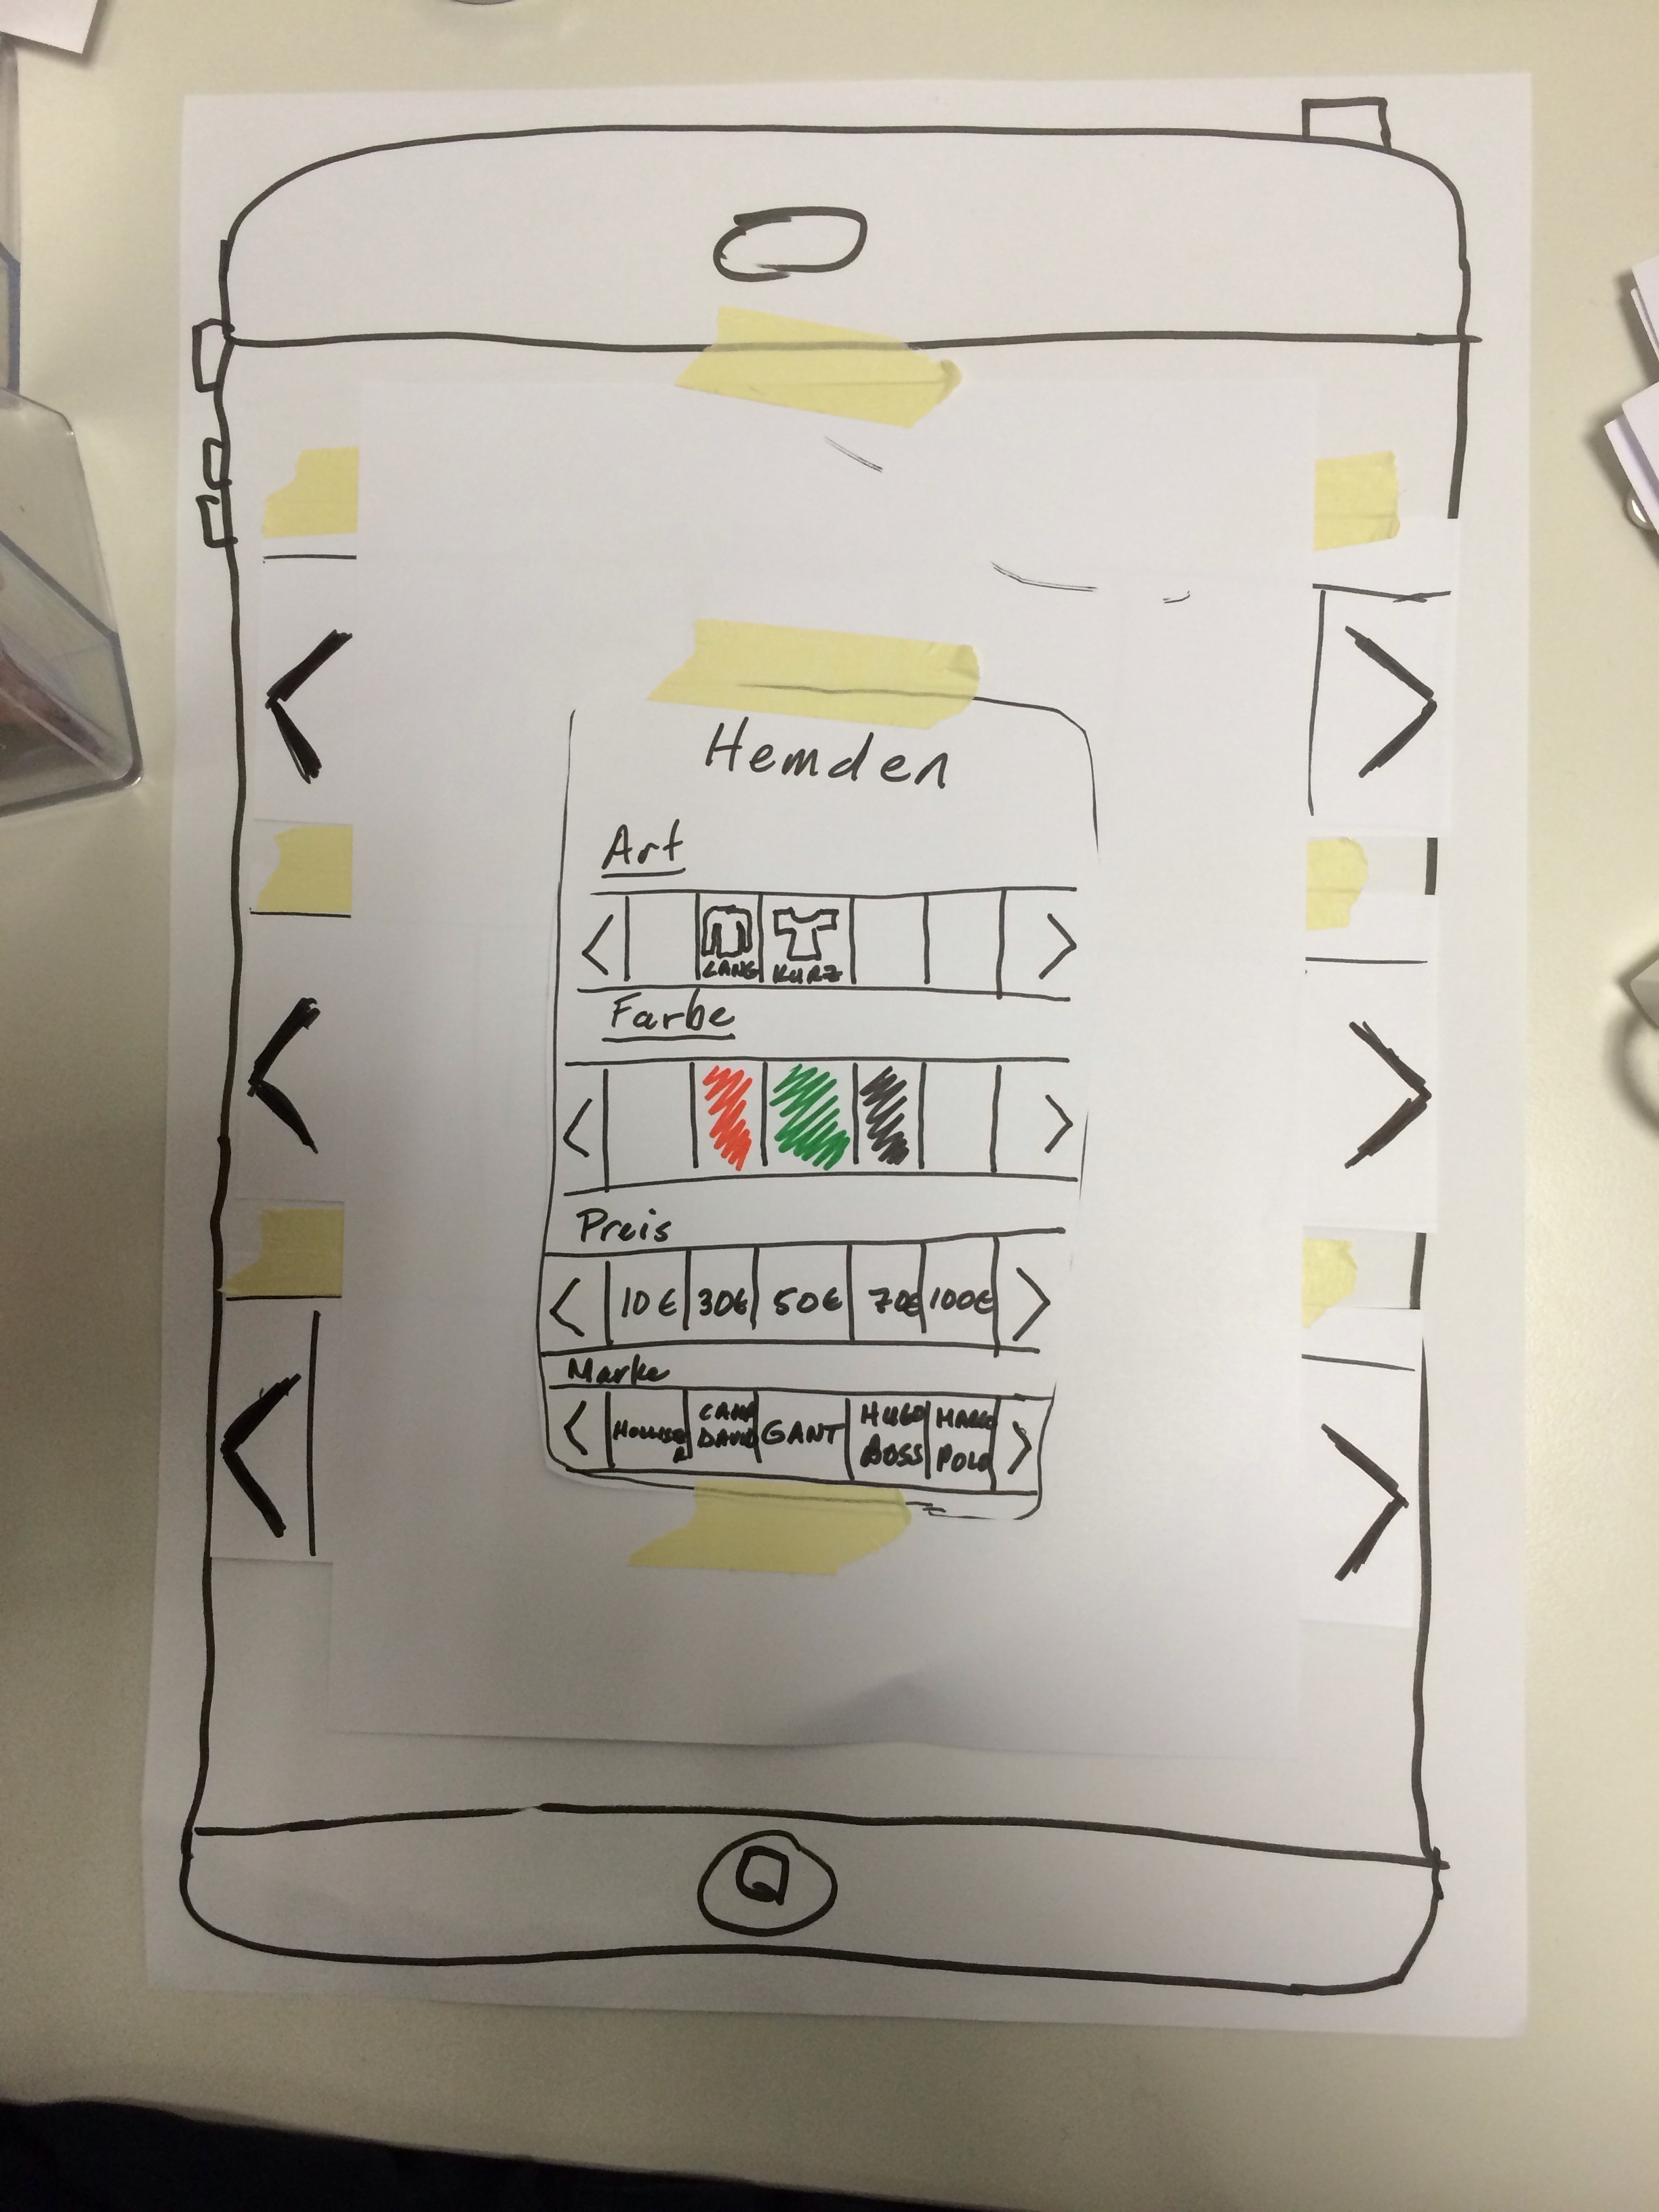 Hemden
Art
< LANG KURZ >
Farbe
< >
Preis
< 10€ 30€ 50€ 70€ 100€ >
Marke
< CAMP HUGO MARC >
DAVID GANT BOSS POLO